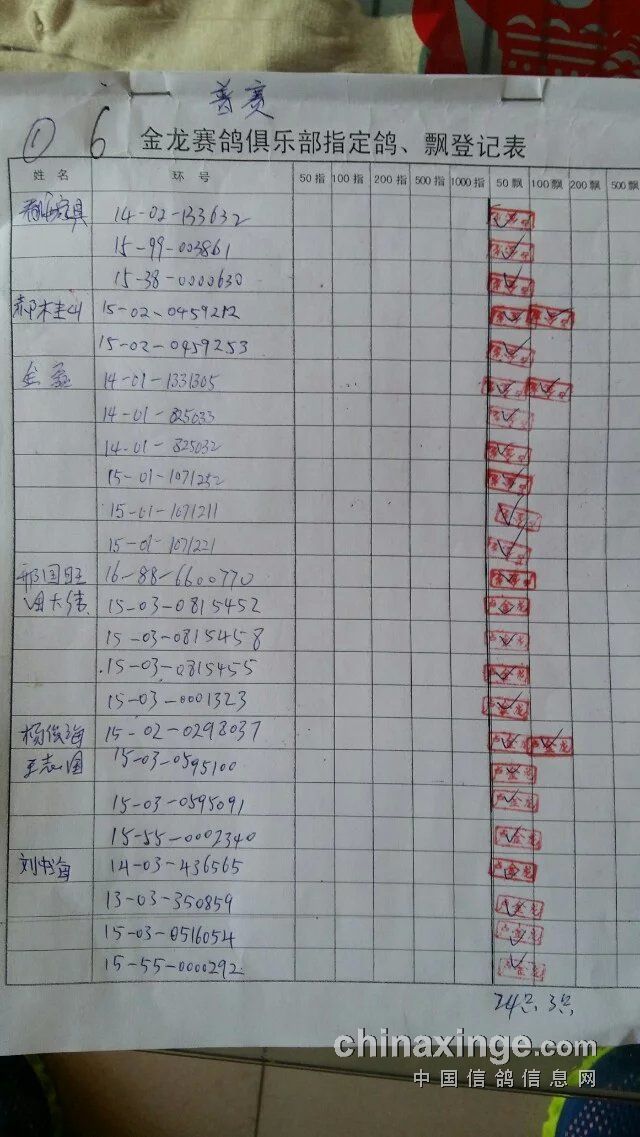 普赛
① 6
金龙赛鸽俱乐部指定鸽、飘登记表
姓名 环号 50指 100指 200指 500指 1000指 50飘 100飘 200飘 500飘
14-02-133632
15-99-003861
15-38-0000630
15-02-0459212
15-02-0459253
14-01-1331305
14-01-825033
14-01-825032
15-01-1071252
15-01-1071211
15-01-1071221
邢国旺 16-88-6600770
15-03-0815452
15-03-0815458
15-03-0815455
15-03-0001323
杨俊海 15-02-0298037
王志国 15-03-0595100
15-03-0595091
15-55-0002340
刘书海 14-03-436565
13-03-350859
15-03-0516054
15-55-0000292
24只 3只
chinaxinge.com
中国信鸽信息网